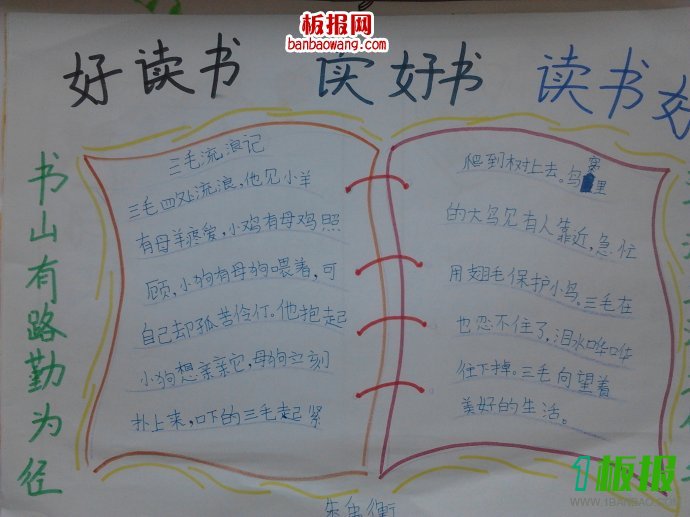 板报网
banbaowang.com
好读书 读好书 读书好
书山有路勤为径
三毛流浪记
三毛四处流浪,他见小羊
有母羊疼爱,小鸡有母鸡照
顾,小狗有母狗喂着,可
自己却孤苦伶仃。他抱起
小狗想亲亲它,母狗立刻
扑上来,吓的三毛赶紧
爬到树上去。鸟窝里
的大鸟见有人靠近,急忙
用翅毛保护小鸟。三毛在
也忍不住了,泪水哗哗
往下掉。三毛向望着
美好的生活。
1板报
WWW.1BANBAO.COM